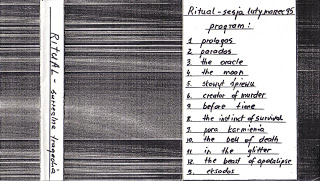 RITUAL - surrealna tragedia
Ritual - sesja luty marzec 95
program:
1. prologos
2. parodos
3. the oracle
4. the moon
5. słowył śpiewu
6. creator of murder
7. before time
8. the instinct of survival
9. pora karmienia
10. the bell of death
11. in the glitter
12. the beast of apocalipse
5. eksodos